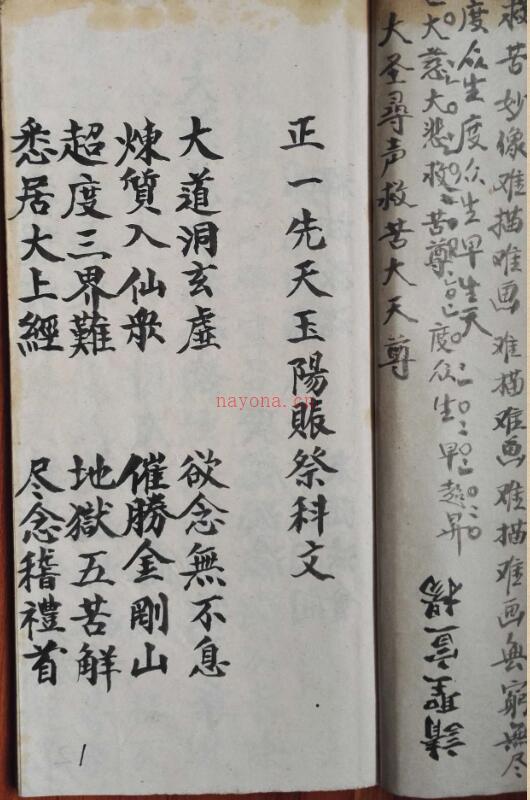 救苦妙像难描唯画难描难画难描难画無窮無尽
度众生度众生早生天
大慈大悲救苦尊度众生早超昇
大圣尋声救苦大天尊
請聖言橋
正一先天玉陽賬祭科文
大道洞玄虛 欲念無不息
煉質入仙衆 催勝金剛山
超度三界難 地獄五苦解
悉居大上經 尽念稽禮首
1
nayona.cn